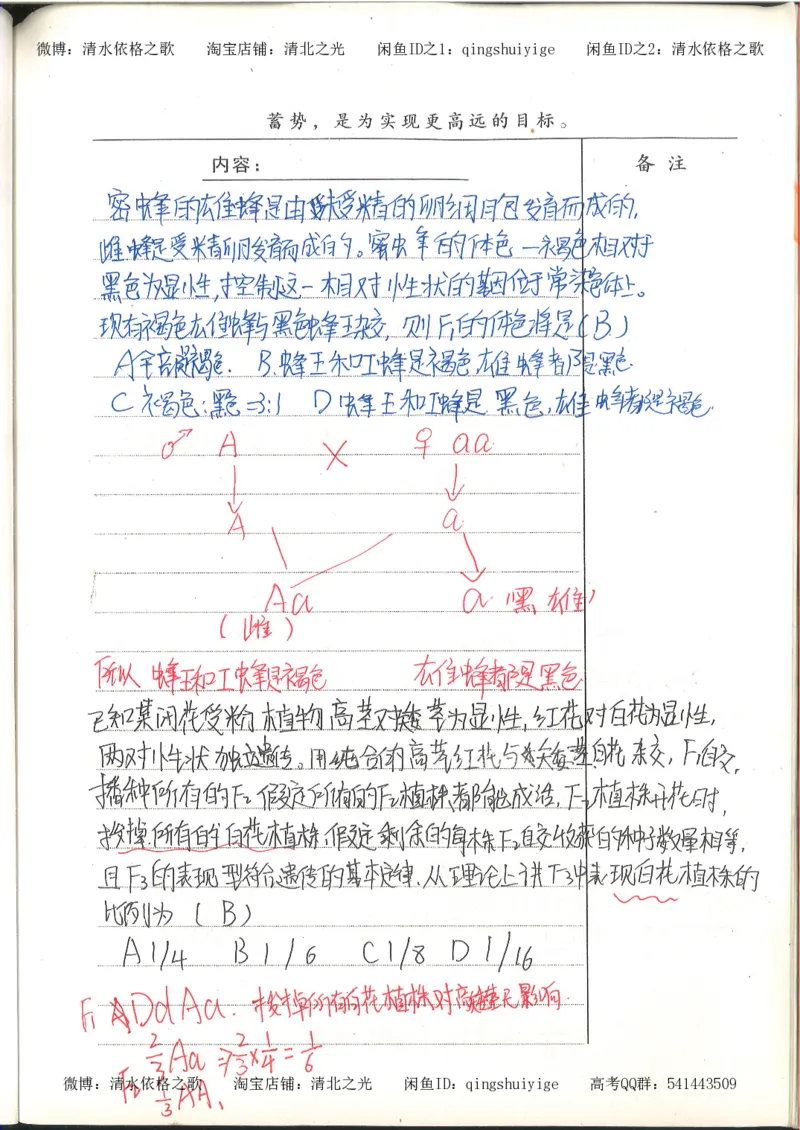 微博：清水依格之歌　　淘宝店铺：清北之光　　闲鱼ID之1：qingshuiyige　　闲鱼ID之2：清水依格之歌
蓄势，是为实现更高远的目标。
内容：
备 注
密蜂的雄蜂是由未受精的卵细胞发育而成的,
雌蜂是受精卵发育而成的。蜜蜂的体色一褐色相对于
黑色为显性,控制这一相对性状的基因位于常染色体上。
现有褐色雄蜂与黑色蜂王杂交, 则F1的体色将是(B)
A全部是褐色. B.蜂王和工蜂是褐色,雄蜂者都是黑色.
C 褐色:黑色=3:1 D 蜂王和工蜂是黑色,雄蜂都是褐色.
♂ A × ♀ aa
A a
Aa a (黑,雄)
(雌)
所以 蜂王和工蜂是褐色 雄蜂都是黑色
已知某闭花受粉植物高茎对矮茎为显性,红花对白花为显性,
两对性状独立遗传。用纯合的高茎红花与矮茎白花杂交,F1自交,
播种所有的F2,假定所有的F2植株都能成活,F2植株开花时,
拔掉所有的白花植株,假定剩余的每株F2自交收获的种子数量相等,
且F3的表现型符合遗传的基本定律.从理论上讲F3中表现白花植株的
比例为 (B)
A 1/4 B 1/6 C 1/8 D 1/16
F1 DdAa. 拔掉所有白花植株对高矮茎无影响.
F2 2/3Aa ⇒ 2/3×1/4=1/6
1/3AA、
微博：清水依格之歌　　淘宝店铺：清北之光　　闲鱼ID：qingshuiyige　　高考QQ群：541443509